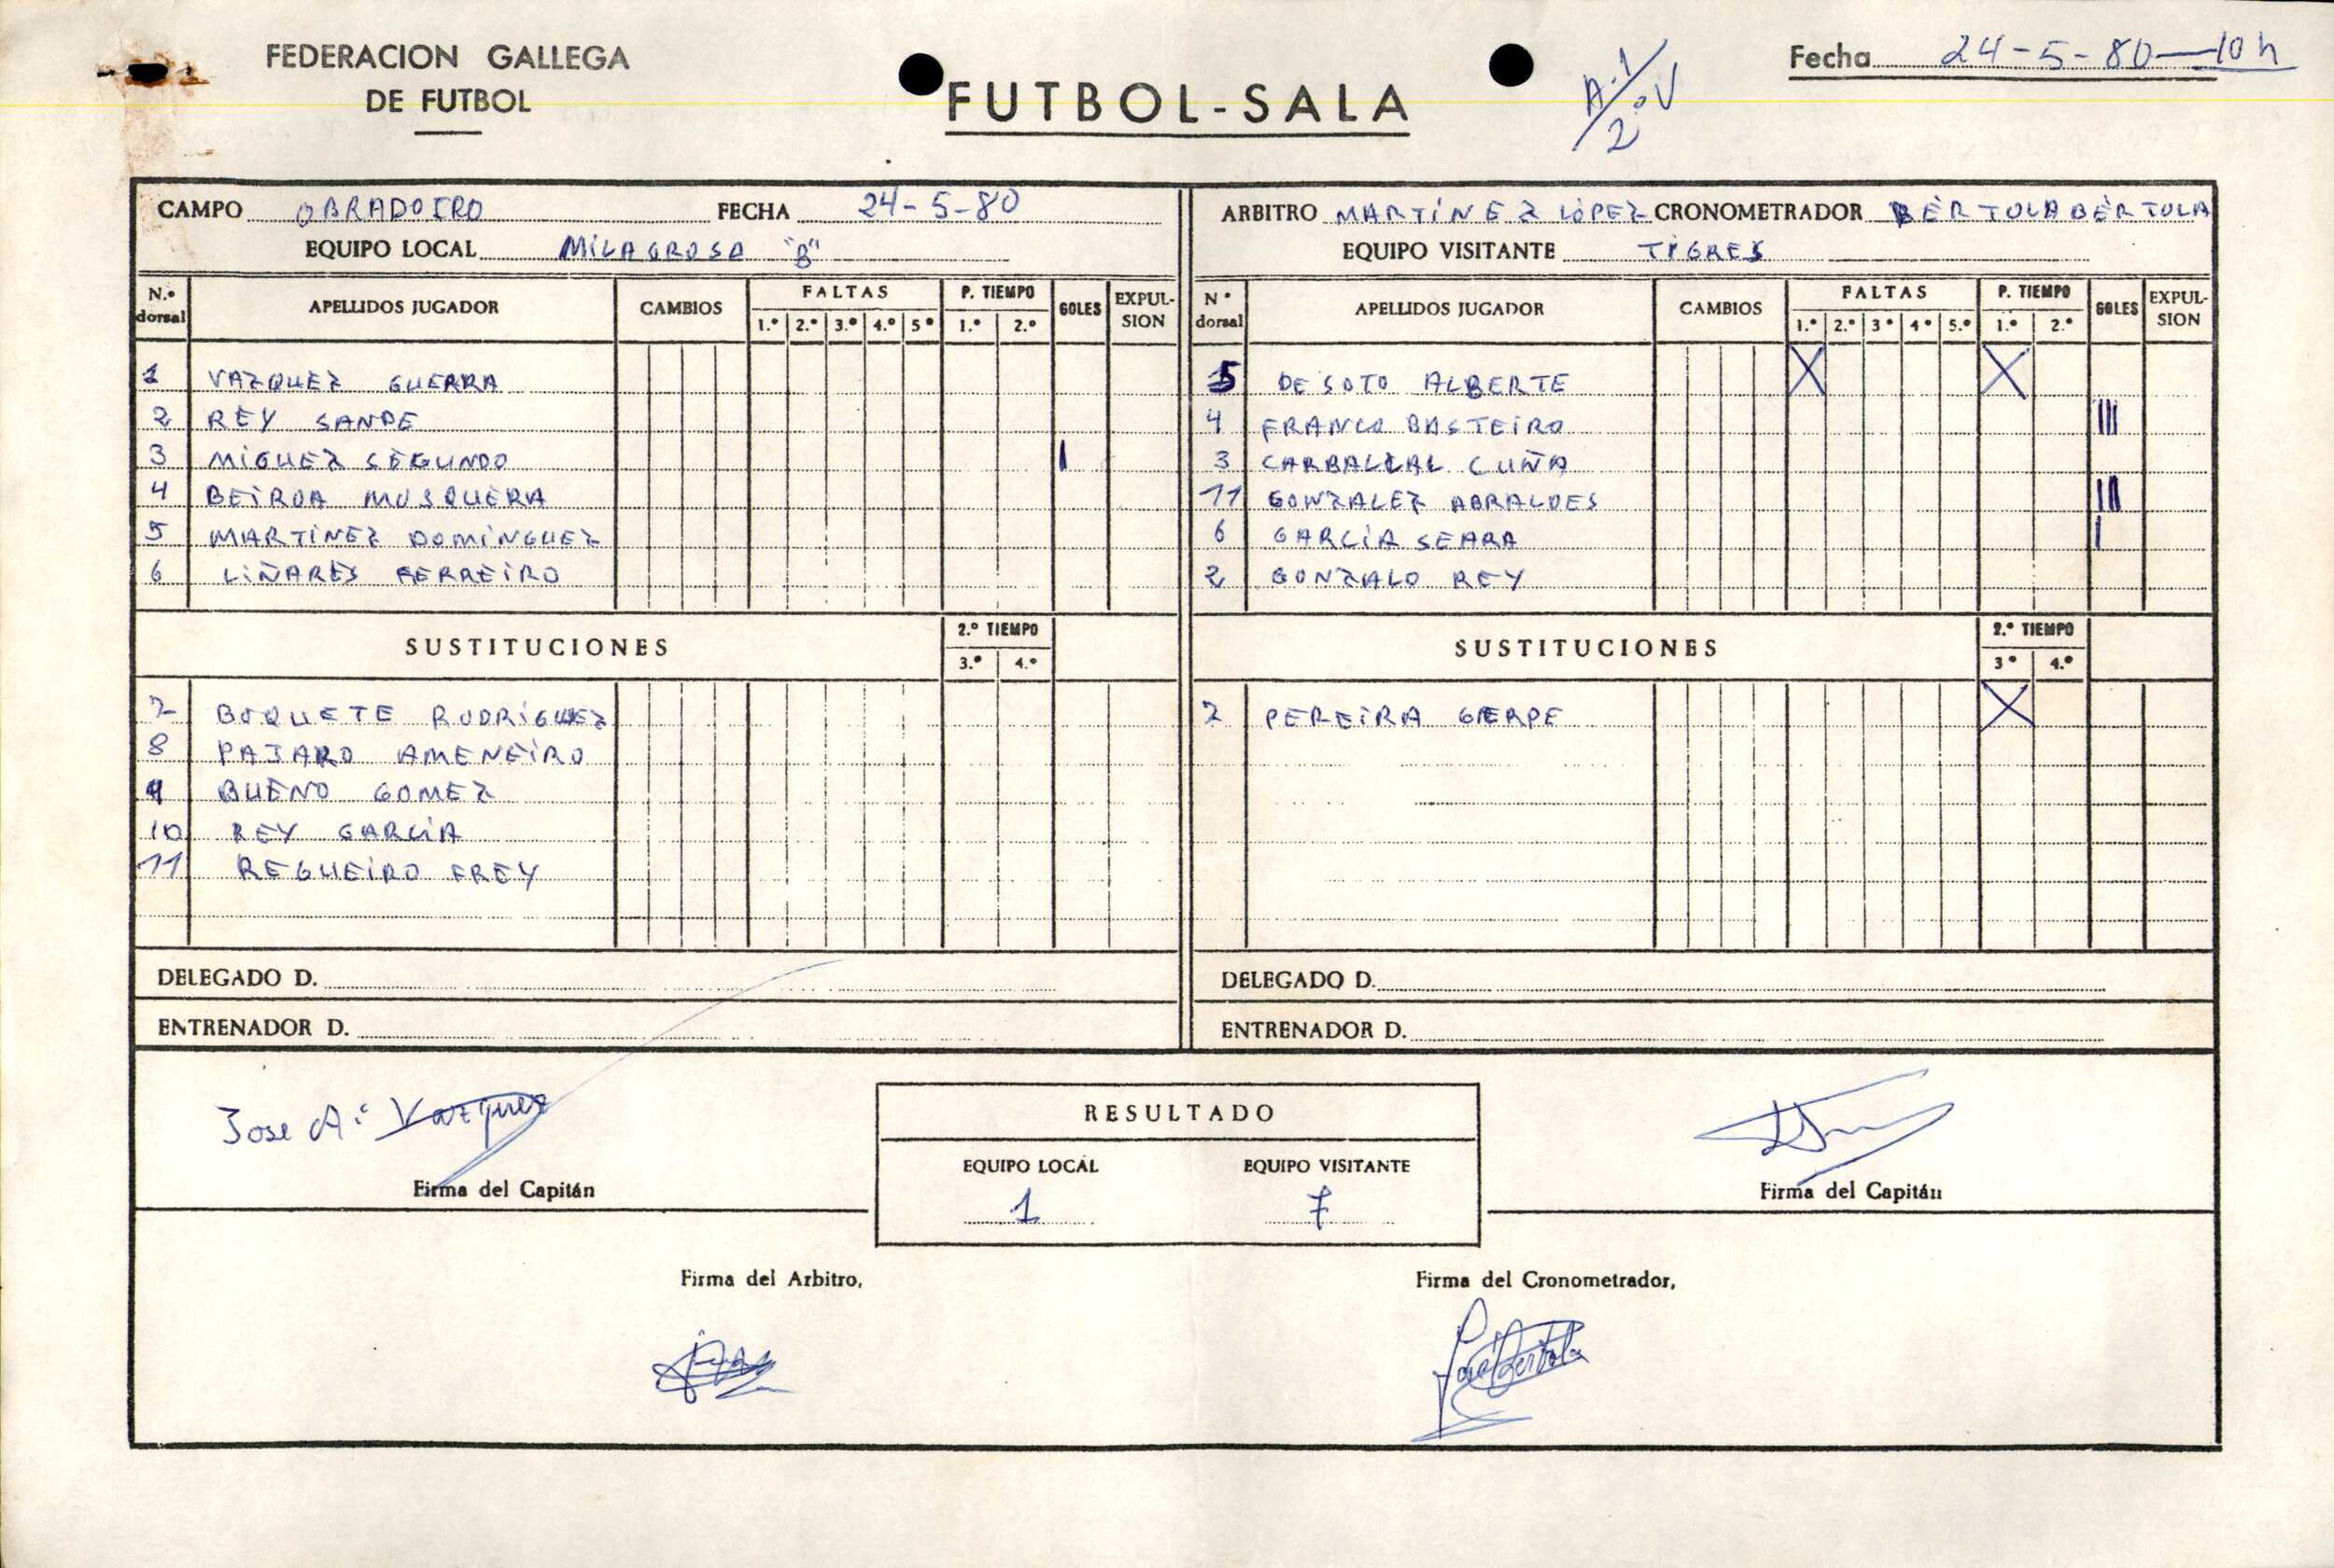 FEDERACION GALLEGA
DE FUTBOL
FUTBOL-SALA
A-1/2ºV
Fecha 24-5-80-10h
CAMPO OBRADOIRO FECHA 24-5-80
EQUIPO LOCAL MILAGROSA "B"
N.º dorsal APELLIDOS JUGADOR CAMBIOS FALTAS P. TIEMPO GOLES EXPUL-SION
1.º 2.º 3.º 4.º 5º 1.º 2.º
1 VAZQUEZ GUERRA
2 REY SANDE
3 MIGUEZ SEGUNDO I
4 BEIROA MOSQUERA
5 MARTINEZ DOMINGUEZ
6 LIÑARES FERREIRO
SUSTITUCIONES 2.º TIEMPO
3.º 4.º
7 BOQUETE RODRIGUEZ
8 PAJARO AMENEIRO
9 BUENO GOMEZ
10 REY GARCIA
11 REGUEIRO FREY
DELEGADO D.
ENTRENADOR D.
ARBITRO MARTINEZ LOPEZ CRONOMETRADOR BERTOLA BERTOLA
EQUIPO VISITANTE TIGRES
Nº dorsal APELLIDOS JUGADOR CAMBIOS FALTAS P. TIEMPO GOLES EXPUL-SION
1.º 2.º 3º 4º 5.º 1.º 2.º
5 DE SOTO ALBERTE X X
4 FRANCO BASTEIRO III
3 CARBALLAL CUÑA
11 GONZALEZ ABRALDES III
6 GARCIA SEARA I
2 GONZALO REY
SUSTITUCIONES 2.º TIEMPO
3º 4.º
7 PEREIRA GERPE X
DELEGADO D.
ENTRENADOR D.
Jose A. Vazquez
Firma del Capitán
RESULTADO
EQUIPO LOCAL EQUIPO VISITANTE
1 7
Firma del Capitán
Firma del Arbitro,
Firma del Cronometrador,